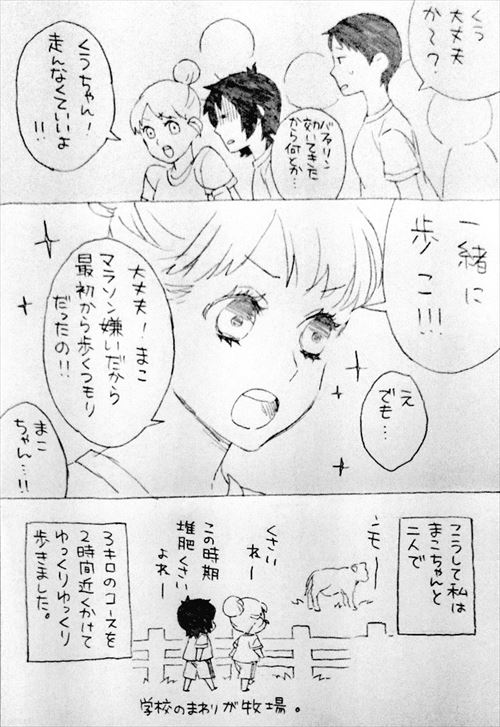 くう
大丈夫
か〜?
バファリン
効いてきた
から何とか…
くうちゃん!
走んなくていいよ
!!
一緒に
歩こ!!!
え
でも…
大丈夫!まこ
マラソン嫌いだから
最初から歩くつもり
だったの!!
まこ
ちゃん…!!
こうして私は
まこちゃんと
二人で
ンモー
くさい
ねー
この時期
堆肥くさい
よねー
3キロのコースを
2時間近くかけて
ゆっくりゆっくり
歩きました。
学校のまわりが牧場。